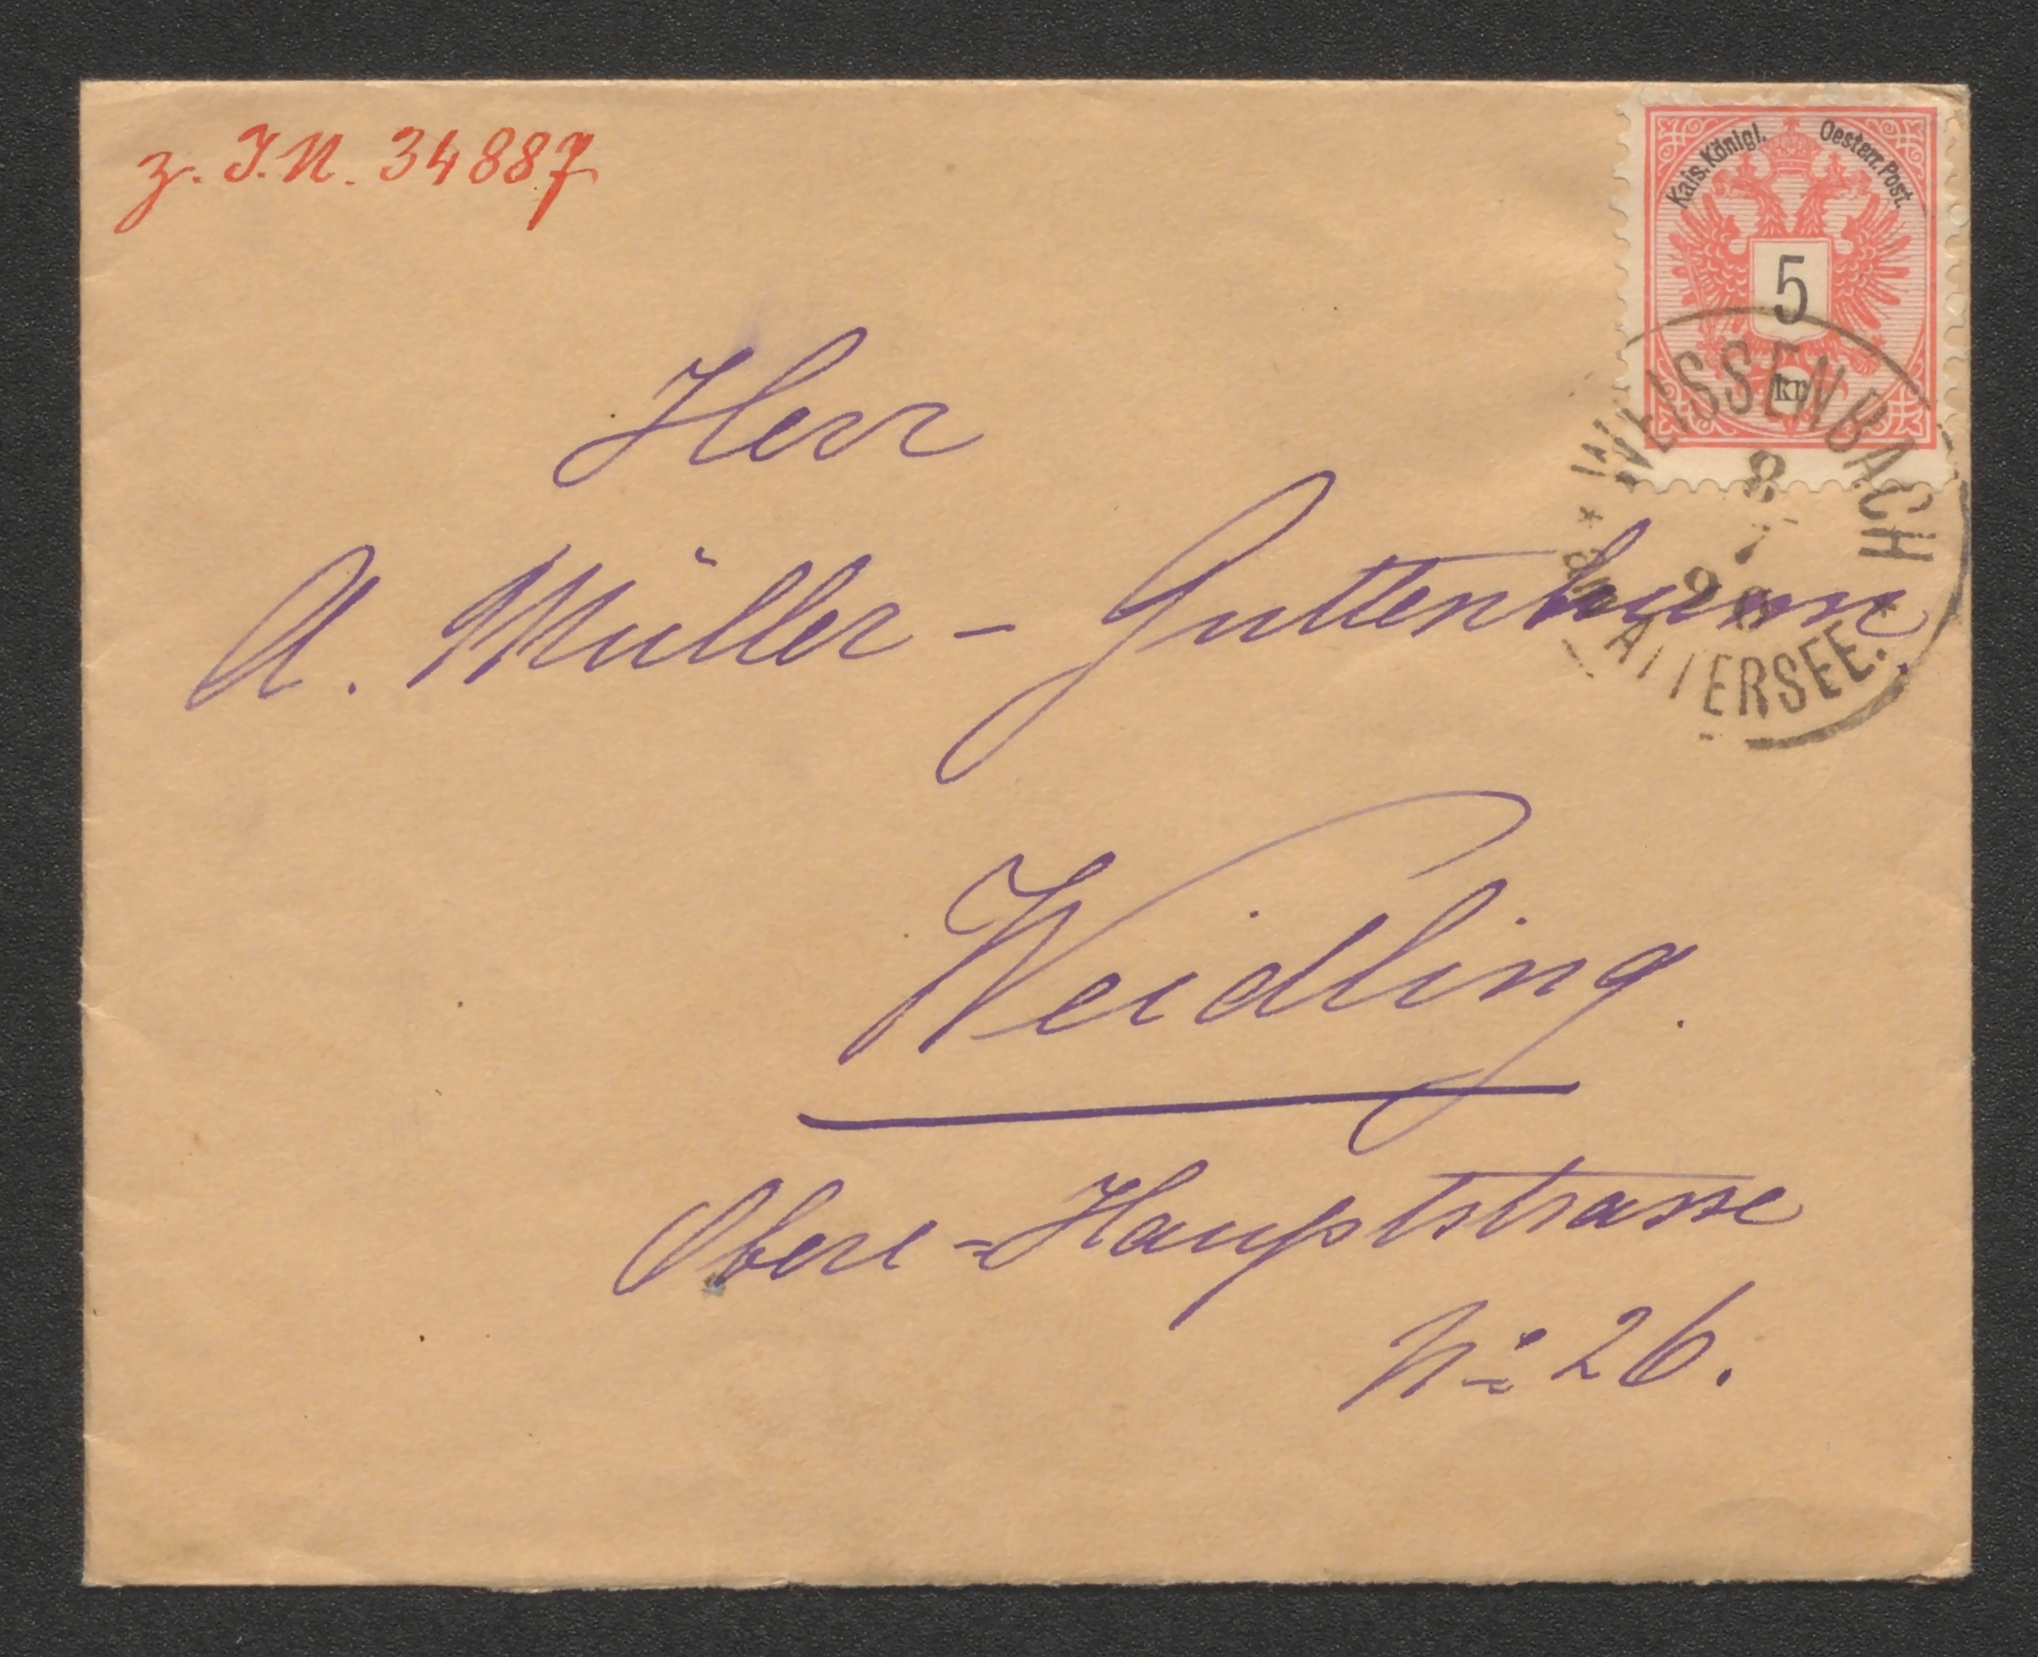 z. I.N. 34887
Kais. Königl. Oesterr. Post.
5
kr
WEISSENBACH
8
7
90
am ATTERSEE.
Herr
A. Müller - Guttenbrunn.
Weidling.
Obere-Hauptstrasse
No 26.